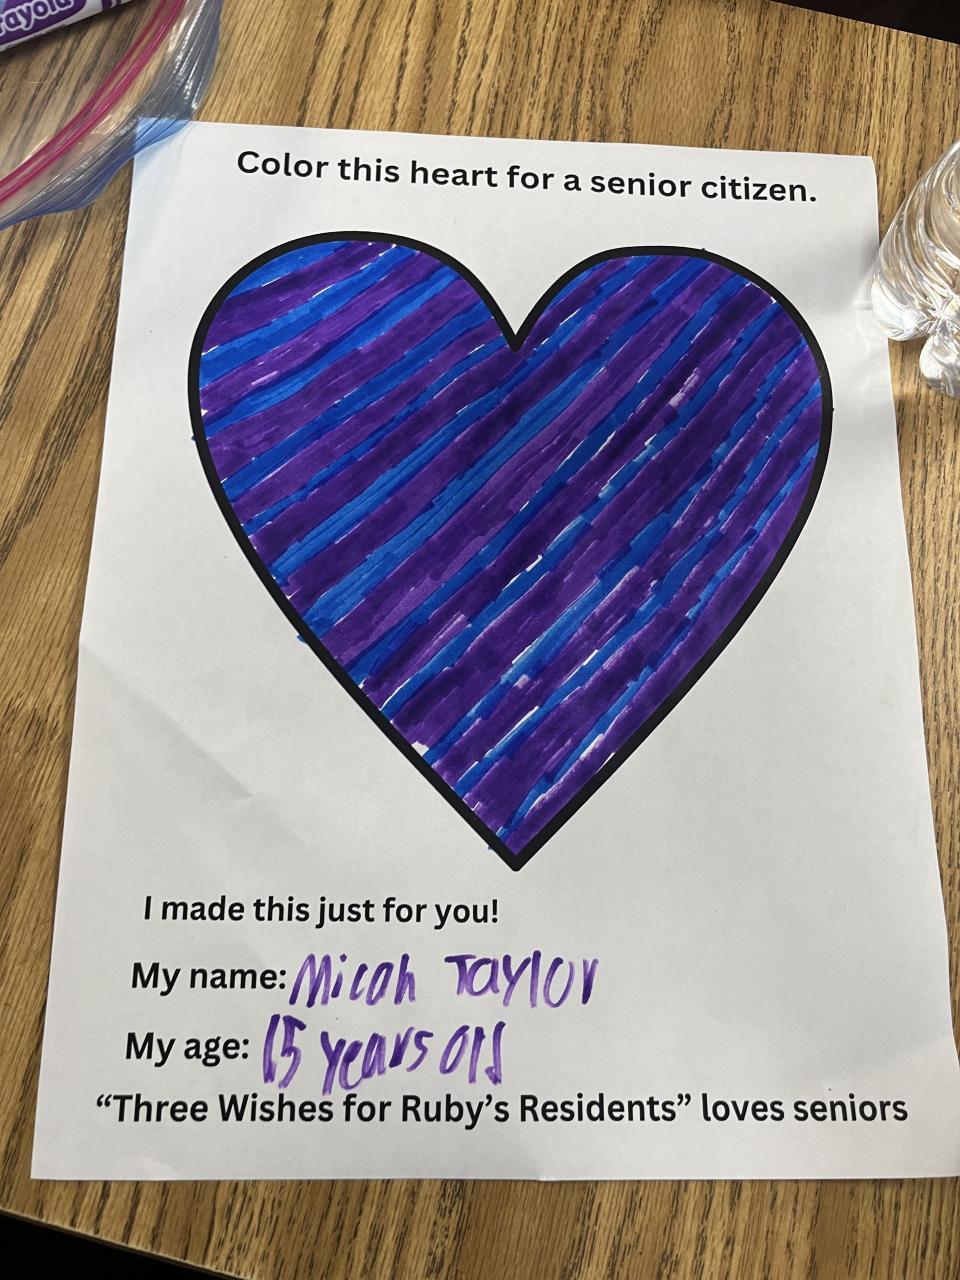 rayola
Color this heart for a senior citizen.
I made this just for you!
My name: Micah Taylor
My age: 15 years old
“Three Wishes for Ruby’s Residents” loves seniors